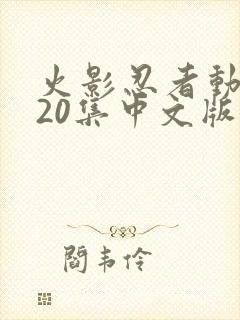 火影忍者動
20集中文版
閻韦伶